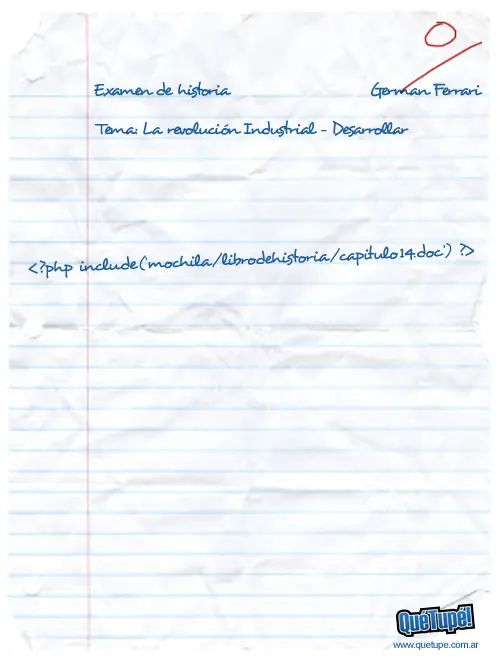 0
Examen de historia German Ferrari
Tema: La revolución Industrial - Desarrollar
<?php include('mochila/librodehistoria/capitulo14.doc') ?>
QuéTupé!
www.quetupe.com.ar